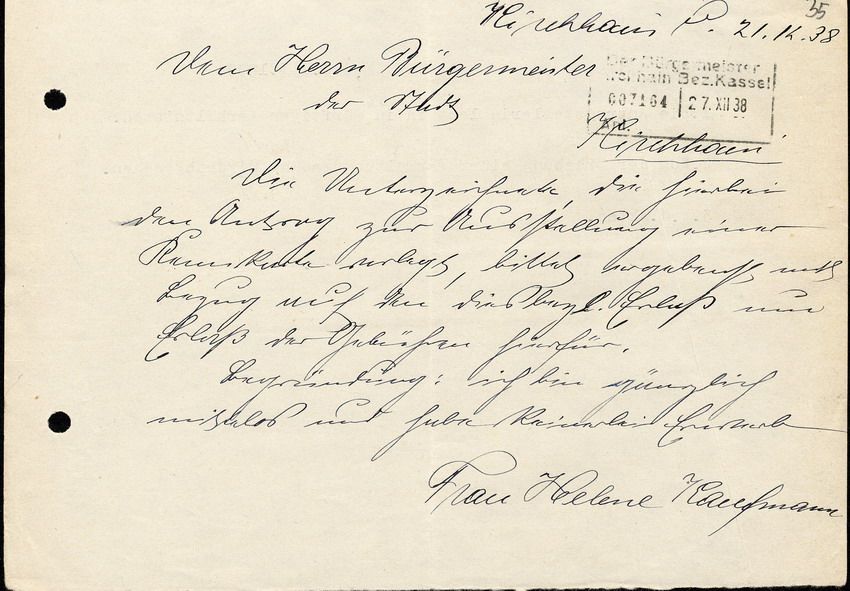 35
Kirchhain P. 21.12.38
Dem Herrn Bürgermeister
der Stadt
Der Bürgermeister
Kirchhain Bez.Kassel
007164 27.XII 38
Kirchhain
Die Unterzeichnete, die hierbei
den Antrag zur Ausstellung einer
Kennkarte vorlegt, bittet ergebenst mit
Bezug auf den diesbezgl. Erlaß um
Erlaß der Gebühren hierfür.
Begründung: ich bin gänzlich
mittellos und habe keinerlei Erwerb
Frau Helene Kaufmann